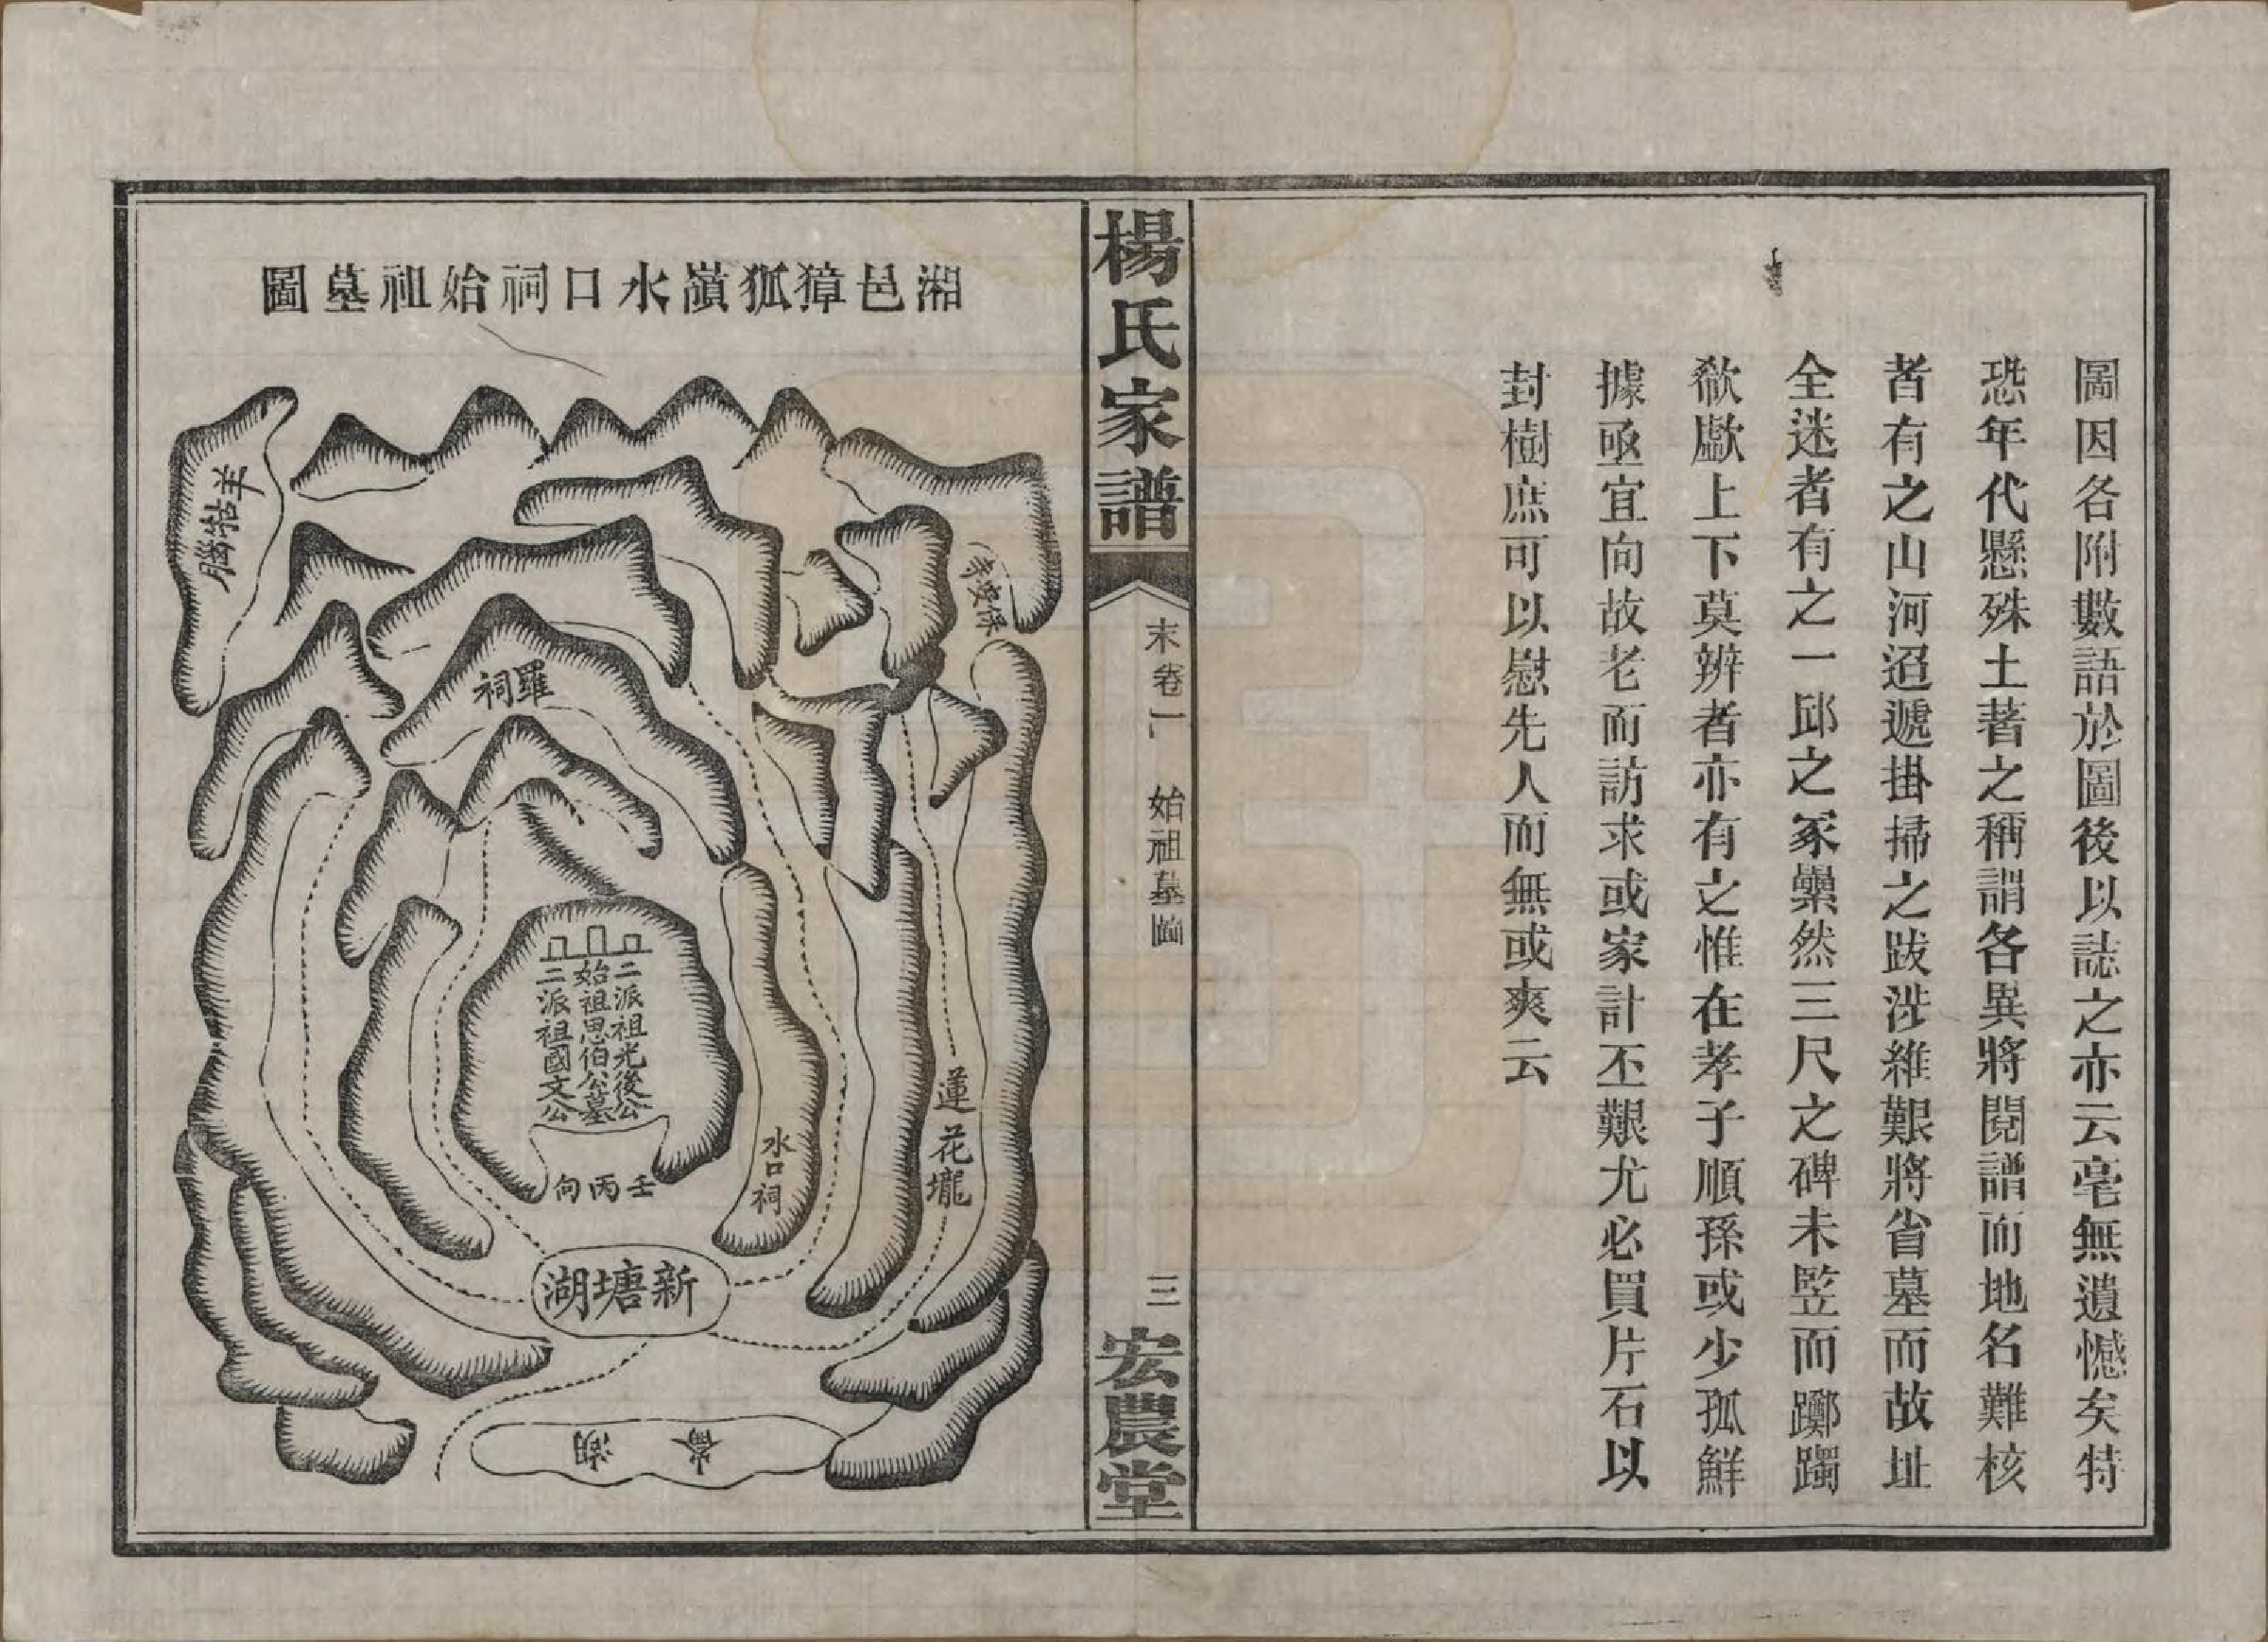 圖因各附數語於圖後以誌之亦云毫無遺憾矣特
恐年代懸殊土著之稱謂各異將閱譜而地名難核
者有之山河迢遞掛掃之跋涉維艱將省墓而故址
全迷者有之一邱之冢纍然三尺之碑未竪而躑躅
欷歔上下莫辨者亦有之惟在孝子順孫或少孤鮮
據亟宜向故老而訪求或家計丕艱尤必買片石以
封樹庶可以慰先人而無或爽云
楊氏家譜
末卷一 始祖墓圖
三
宏農堂
湘邑獐狐嶺水口祠始祖墓圖
羊牯腦
保安寺
羅祠
二派祖光後公
始祖思伯公墓
二派祖國文公
壬丙向
水口祠
蓮花壠
新塘湖
湖